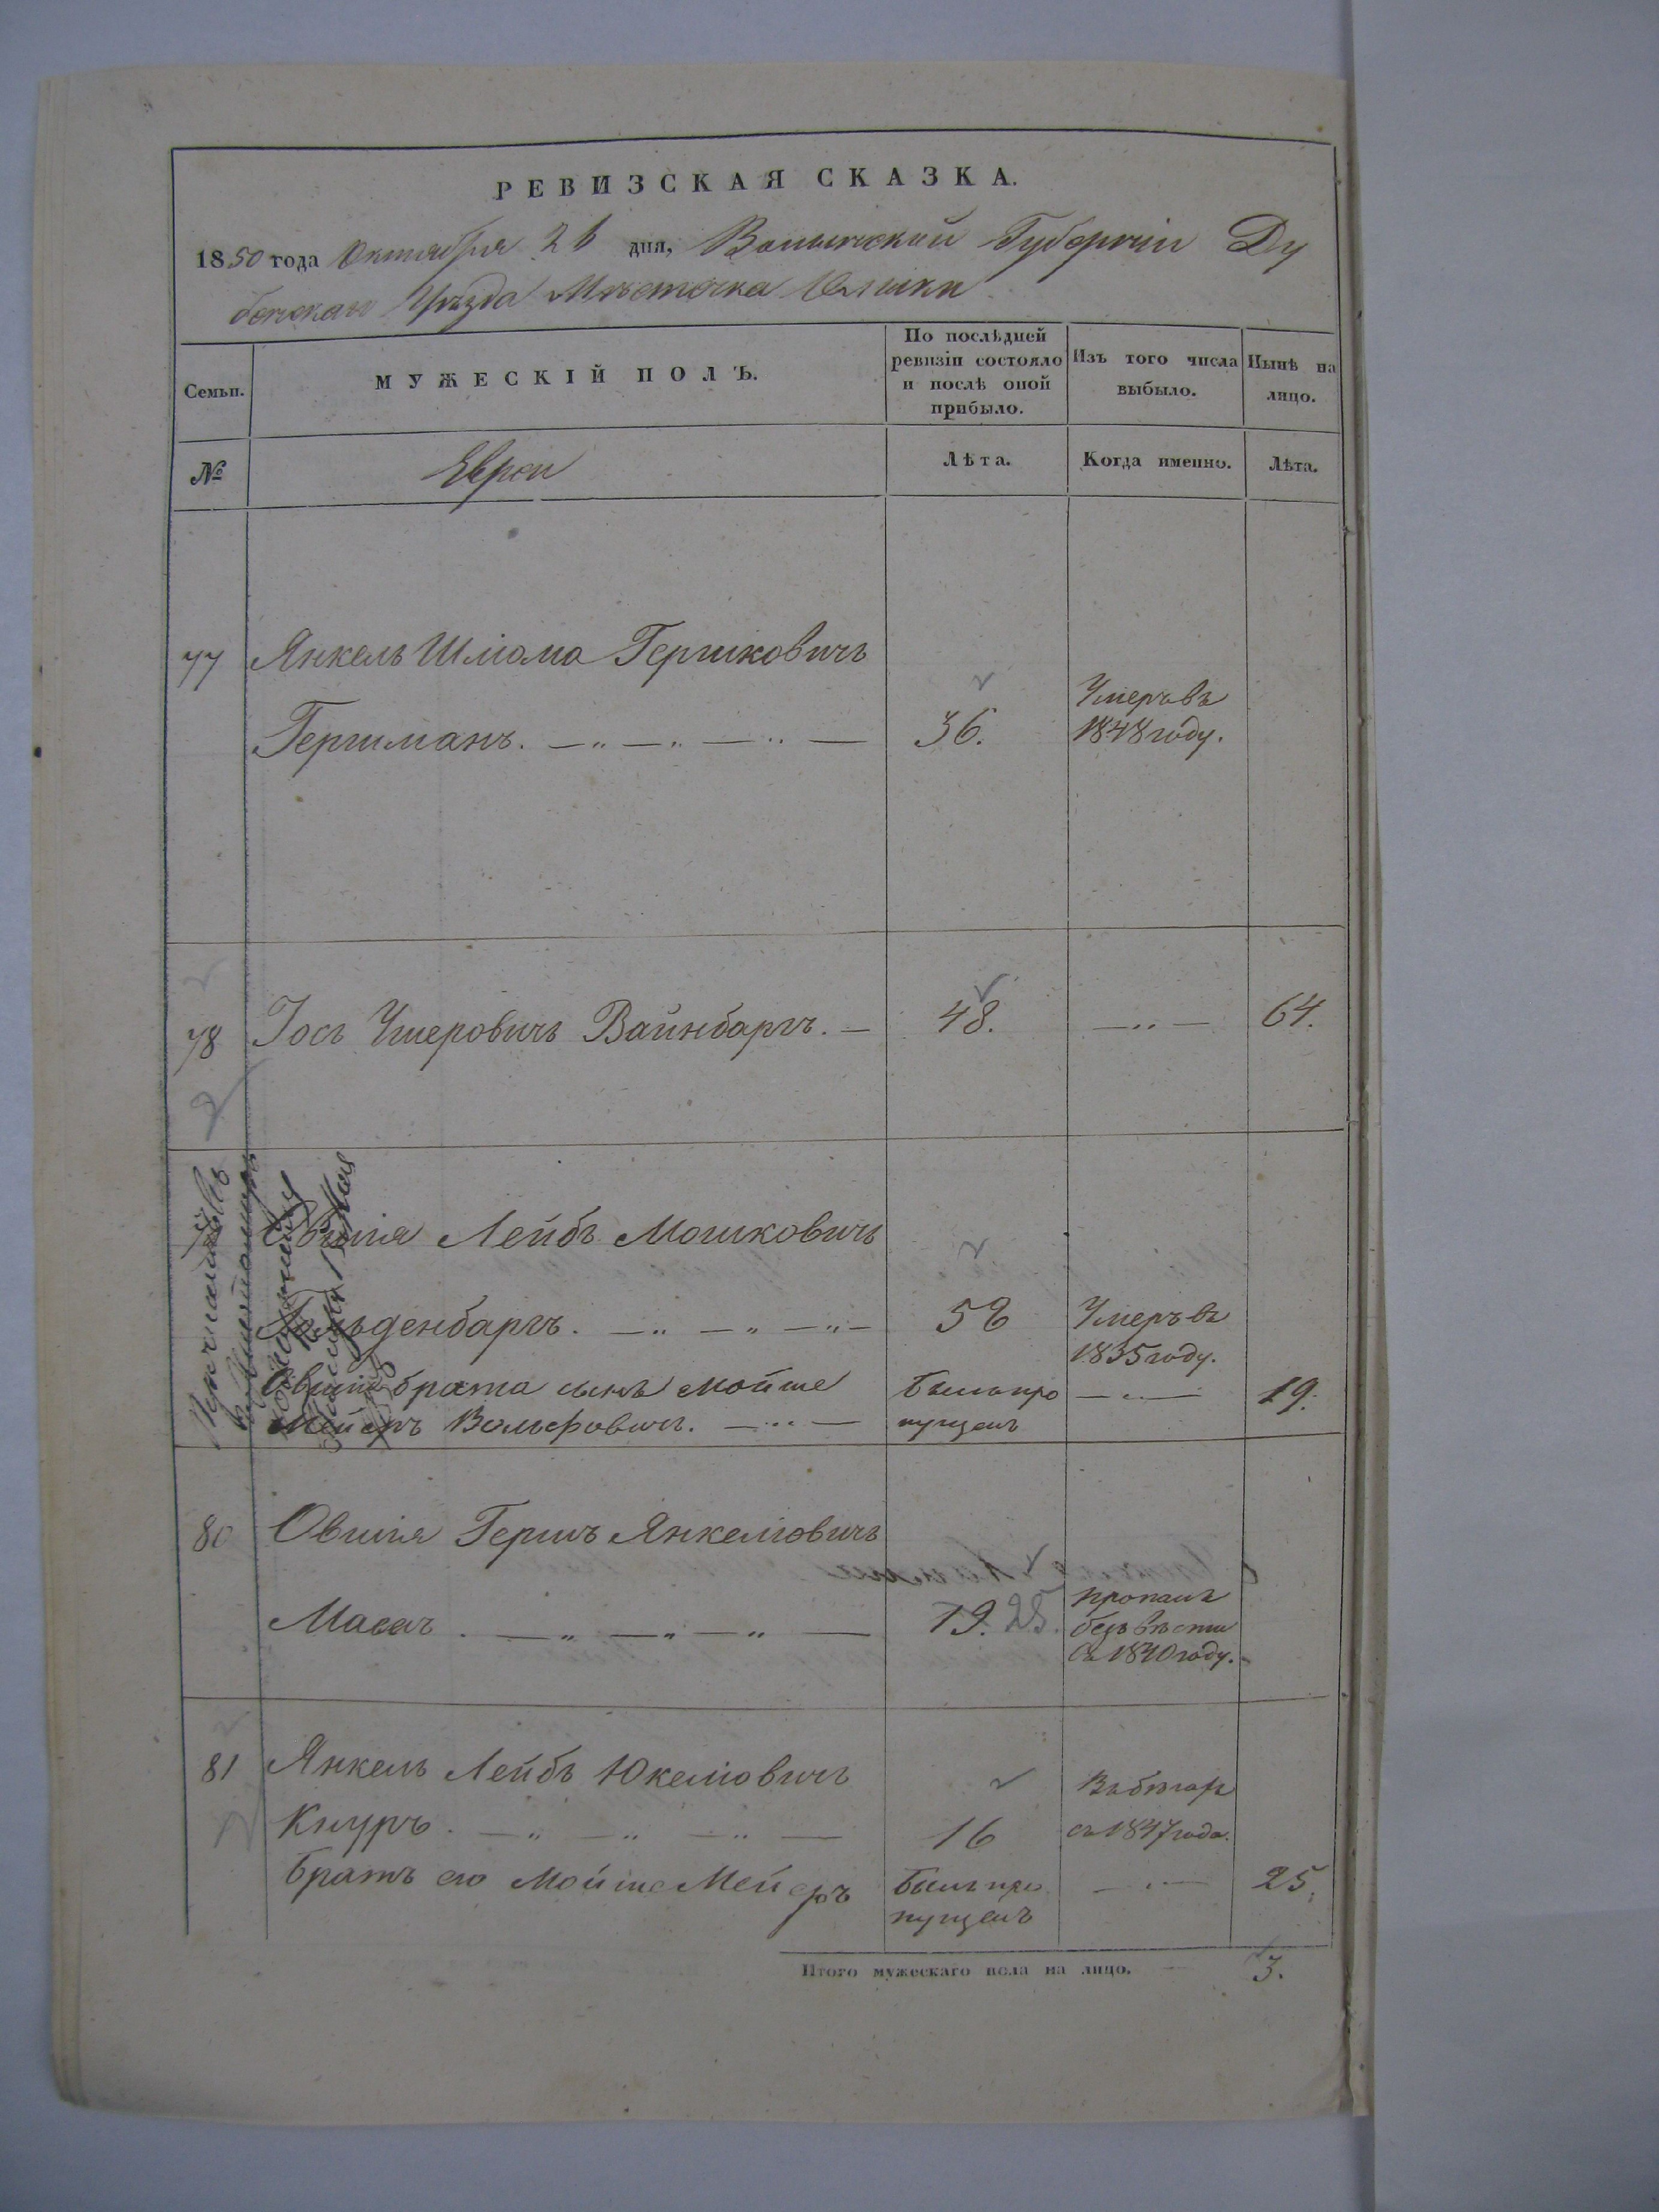 РЕВИЗСКАЯ СКАЗКА.
1850 года Октября 26 дня, Волынской Губерніи Ду
бенскаго Уѣзда Мѣстечка Олыки
Семьи.
МУЖЕСКІЙ ПОЛЪ.
По послѣдней ревизіи состояло и послѣ оной прибыло.
Изъ того числа выбыло.
Нынѣ на лицо.
№
Евреи
Лѣта.
Когда именно.
Лѣта.
77 Янкель Шліома Гершковичъ
Гершманъ. 36. Умеръ въ 1848 году.
78 Іось Ушеровичъ Вайнбаргъ. 48. 64.
Овшія Лейбъ Мошковичъ
Гольденбаргъ. 58 Умеръ въ 1835 году.
Овшія брата сынъ Мойше Былъ про 19.
Мейеръ Вольфовичъ. пущенъ
80 Овшія Гершъ Янкеліовичъ
19. 25. пропалъ безъ вѣсти съ 1840 году.
81 Янкель Лейбъ Юкеліовичъ
Кнуръ. 16 Въ бѣгахъ съ 1847 года.
братъ его Мойше Мейеръ Былъ про 25.
пущенъ
Итого мужескаго пола на лицо. 3.